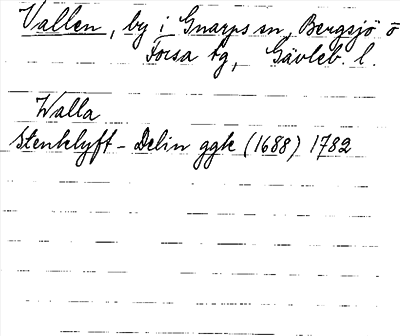 Vallen, by i Gnarps sn, Bergsjö o
Forsa tg, Gävleb. l.
Walla
Stenklyft - Delin ggk (1688) 1782